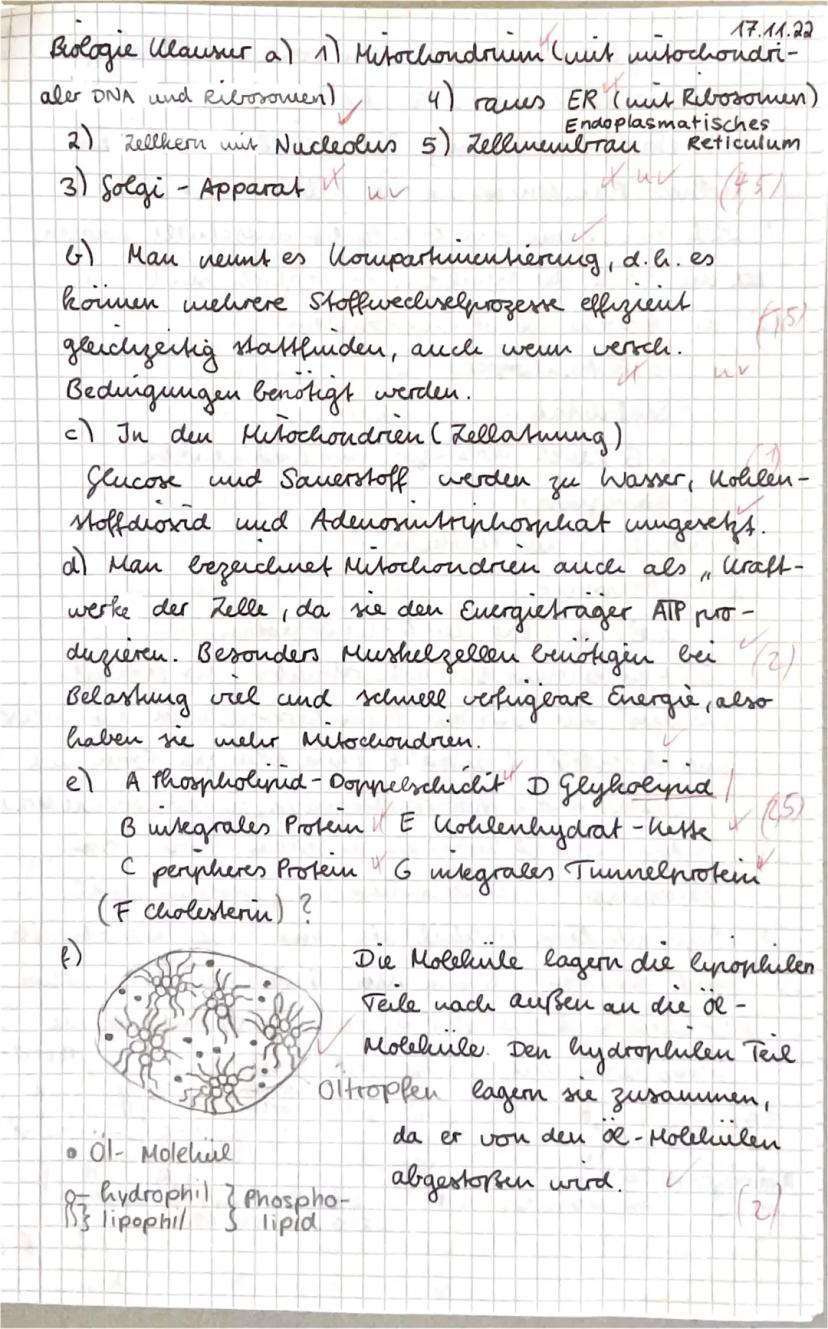 17.11.22
Biologie Klausur a) 1) Mitochondrium (mit mitochondri-
aler DNA und Ribosomen) 4) raues ER (mit Ribosomen)
Endoplasmatisches
2) Zellkern mit Nucleolus 5) Zellmembran Reticulum
3) Golgi - Apparat (4,5)
b) Man nennt es Kompartimentierung, d.h. es
können mehrere Stoffwechselprozesse effizient
gleichzeitig stattfinden, auch wenn versch. (1,5)
Bedingungen benötigt werden.
c) In den Mitochondrien (Zellatmung) (1)
Glucose und Sauerstoff werden zu Wasser, Kohlen-
stoffdioxid und Adenosintriphosphat umgesetzt.
d) Man bezeichnet Mitochondrien auch als „Kraft-
werke der Zelle, da sie den Energieträger ATP pro-
duzieren. Besonders Muskelzellen benötigen bei (2)
Belastung viel und schnell verfügbare Energie, also
haben sie mehr Mitochondrien.
e) A Phospholipid-Doppelschicht D Glykolipid
B integrales Protein E Kohlenhydrat-Kette (2,5)
C peripheres Protein G integrales Tunnelprotein
(F Cholesterin) ?
f) Die Moleküle lagern die lipophilen
Teile nach außen an die Öl-
Moleküle. Den hydrophilen Teil
Öltropfen lagern sie zusammen,
da er von den Öl-Molekülen
• Öl- Molekül
abgestoßen wird. (2)
hydrophil } Phospho-
lipophil } lipid